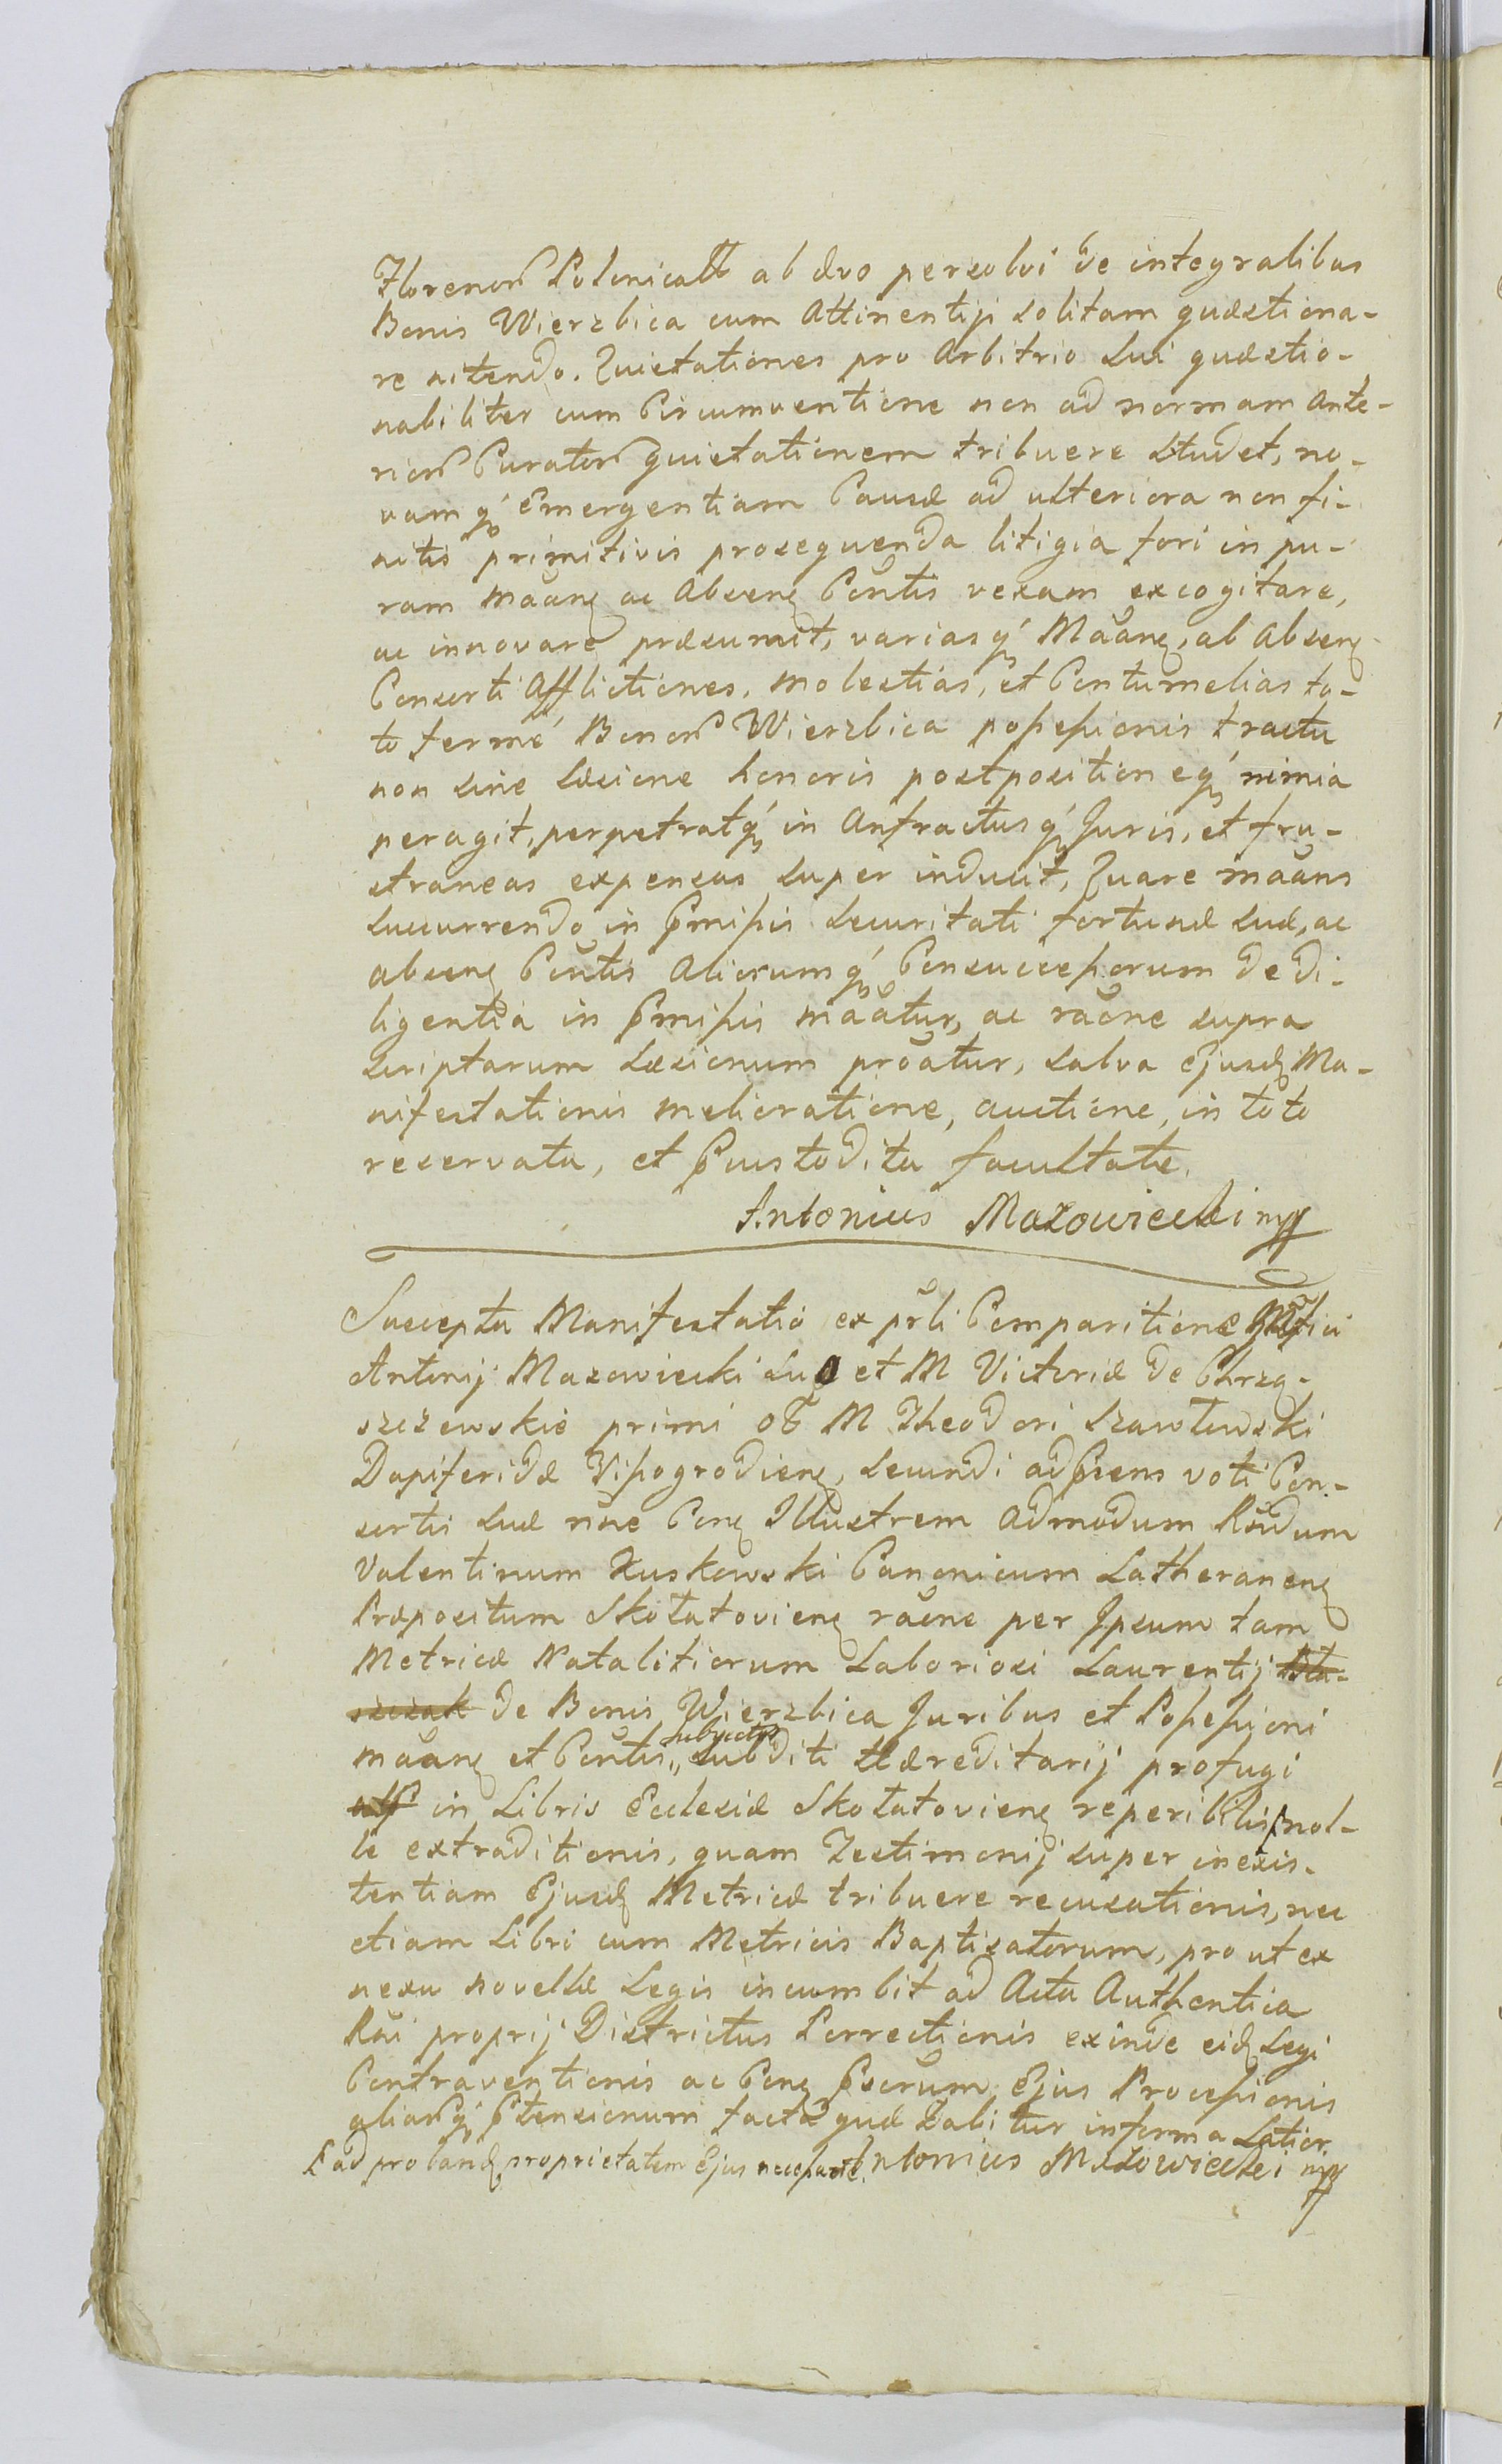 Florenor Polonicall ab ævo persolvi de integralibus
Bonis Wierzbica cum Attinentiji solitam quæstiona-
re nitendo. Quietationes pro Arbitrio Sui quæstio-
nabiliter cum Circumventione non ad normam Ante-
rior Curator quietationem tribuere Studet, no-
vam q́ Emergentiam Causæ ad ulteriora non fi-
nitis primitivis prosequenda litigia fori in pu-
ram mãang ac Absens Contis vexam excogitare,
ac innovare præsumit, varias q́ Mãang, ab Absens
Consorti Afflictiones, molestias, et Contumelias to-
to fermé Bonor Wierzbica possessionis tractu
non sine læsione honoris postposition eq́ nimia
peragit, perpetratq́ in Anfractus q́ Juris, et fru-
straneas expensas super inducit, Quare mãans
succurrendo in Pmissis Securitati fortunæ suæ, ac
absens Contis Aliorum q́ Consuccessorum de di-
ligentia in Pmissis mãatur, ac rãone supra
scriptarum Læsionum prõatur, salva ejusd Ma-
nifestationis melioratione, auctione, in toto
reservata, et Custodita facultate.
Antonius Mazowiecki mpp
Suscepta Manifestatio ex prli Comparitione Mfici
Antonij Mazowiecki Suo et M Victoriæ de Chrzą-
szczewskie primi ol M Theodori Szawłowski
Dapiferidæ Wissogrodiens, secundi ad Psens voti Con-
sortis suæ nõe Cong Illustrem Admodum Rñdum
Valentinum Kuskowski Canonicum Latheranens
Præpositum Skołatoviens rãone per Ipsum tam
Metricæ Natalitiorum Laboriosi Laurentij
de Bonis Wierzbica Juribus et Possessioni
mãang et Contis, subjectis Subditi Hæreditarij profugi
in Libris Ecclesiæ Skołatoviens reperibilis nol-
le extraditionis, quam Testimonij super inexis-
tentiam Ejusd Metricæ tribuere recusationis, nec
etiam Libri cum Metricis Baptisatorum, pro ut ex
nexu novellæ Legis incumbit ad Acta Authentica
Rãi proprij Districtus Porrectionis exinde eid Legi
Contraventionis ac Cong Psorum Ejus Processionis
aliar q́ Ptensionum facta quæ dabitur in forma Latior.
ad proband proprietatem Ejus necessariæ. Antonius Mazowiecki mpp